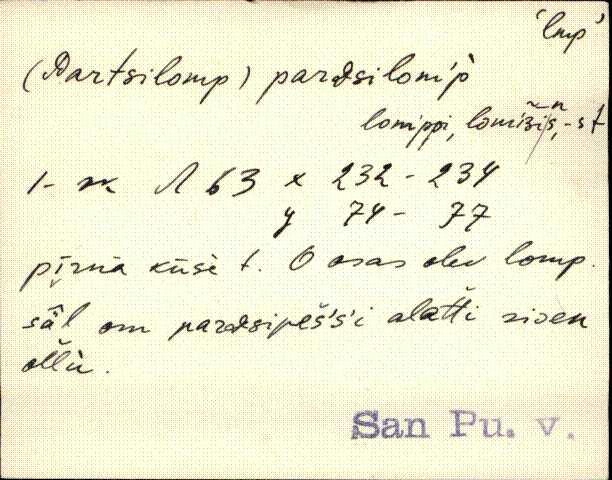 'lmp'
(Partsilomp) pardsilomp̀
lomppi, lombis, -st
1- m Л 63 x 232 - 234
y 74 - 77
küsè t. O osas olev lomp.
sȃl om pardsipeśśi alatti sisen
ollù.
San Pu. v.